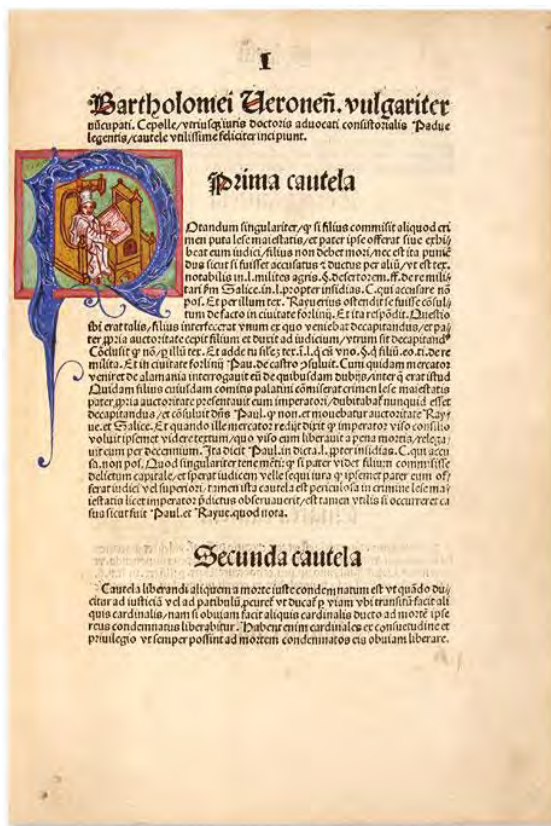 I
Bartholomei Ueroneñ. vulgariter
nūcupati. Cepolle/vtriusqꝫ iuris doctoris advocati consistorialis Padue
legentis/cautele vtilissime feliciter incipiunt.
Prima cautela
Otandum singulariter/ꝙ si filius commisit aliquod cri
men puta lese maiestatis/et pater ipse offerat siue exhi
beat eum iudici/filius non debet mori/nec est ita
dus sicut si fuisset accusatus ⁊ ductus per aliū/vt est tex.
notabilis in.l.milites agris.§.desertorem.ff.de re mili
tari Salice.in.l.propter insidias.C.qui accusare nō
pos. Et per illum tex. Rayuerius ostendit se fuisse cōsul
tum de facto in ciuitate forliuij. Et ita respōdit. Questio
ibi erat talis/filius interfecerat vnum ex quo veniebat decapitandus/et pa
ter ꝓpria auctoritate cepit filium et duxit ad iudicium/vtrum sit decapitandꝰ
Cōclusit ꝙ nō/ꝑ illū tex. Et adde tu
milita. Et in ciuitate forliuij Pau.de castro cōsuluit. Cum quidam mercator
veniret de alamania interrogauit eū de quibusdam dubijs/inter erat istud
Quidam filius cuiusdam comitis palatini cōmiserat crimen lese maiestatis
pater ꝓpria auctoritate presentauit eum imperatori/dubitabat nunquid esset
decapitandus/et cōsuluit dn̄s Paul.ꝙ non.et mouebatur auctoritate Ray
ue.et Salice. Et quando ille mercator redijt dixit ꝙ imperator viso consilio
voluit ipsemet videre textum/quo viso eum liberauit a pena mortis/relega
uit eum per decennium. Ita dicit Paul.in dicta.l.ꝓpter insidias.C.qui accu
sa.non pos. Quod singulariter tene mēti:ꝙ si pater videt filium commisisse
delictum capitale/et sperat iudicem velle sequi iura ꝙ ipsemet pater eum of
ferat iudici vel superiori.tamen ista cautela est periculosa in crimine lese ma
iestatis licet imperator p̄dictus obseruauerit/est tamen vtilis si occurreret ca
sus sicut fuit Paul.et Rayue.quod nota.
Secunda cautela
Cautela liberandi aliquem a morte iuste condemnatum est vt quādo du
citur ad iusticiā vel ad patibulū/ ꝑ viam vbi transitū facit ali
quis cardinalis/nam si obuiam facit aliquis cardinalis ducto ad mortē ipse
reus condemnatus liberabitur. Habent enim cardinales ex consuetudine et
priuilegio vt semper possint ad mortem condemnatos eis obuiam liberare.